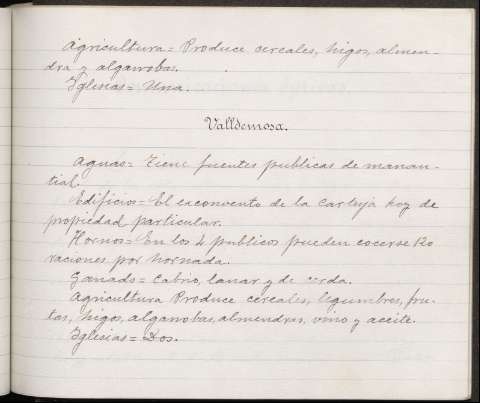 Agricultura= Produce cereales, higos, almen-
dra y algarrobas.
Iglesias= Una.
Valldemosa.
Aguas= Tiene fuentes publicas de manan-
tial.
Edificios= El exconvento de la Cartuja hoy de
propiedad particular.
Hornos= En los 4 publicos pueden cocerse 120
raciones por hornada.
Ganado= Cabrio, lanar y de cerda.
Agricultura Produce cereales, legumbres, fru-
tas, higos, algarrobas, almendras, vino y aceite.
Iglesias= Dos.